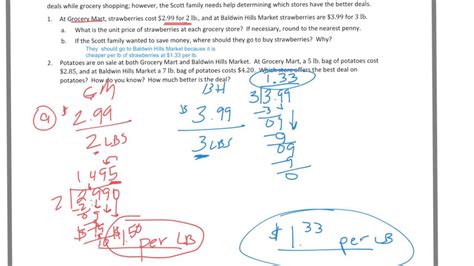 deals while grocery shopping; however, the Scott family needs help determining which stores have the better deals.
1. At Grocery Mart, strawberries cost $2.99 for 2 lb., and at Baldwin Hills Market strawberries are $3.99 for 3 lb.
a. What is the unit price of strawberries at each grocery store? If necessary, round to the nearest penny.
b. If the Scott family wanted to save money, where should they go to buy strawberries? Why?
They should go to Baldwin Hills Market because it is
cheaper per lb of strawberries at $1.33 per lb.
2. Potatoes are on sale at both Grocery Mart and Baldwin Hills Market. At Grocery Mart, a 5 lb. bag of potatoes cost
$2.85, and at Baldwin Hills Market a 7 lb. bag of potatoes costs $4.20. Which store offers the best deal on
potatoes? How do you know? How much better is the deal?
1.33
GM
BH
3 3.99
a
$2.99
$3.99
-3
2 LBS
3 LBS
09
-9
09
9
0
1.495
2 2.990
$1.50 per LB
$1.33 per LB